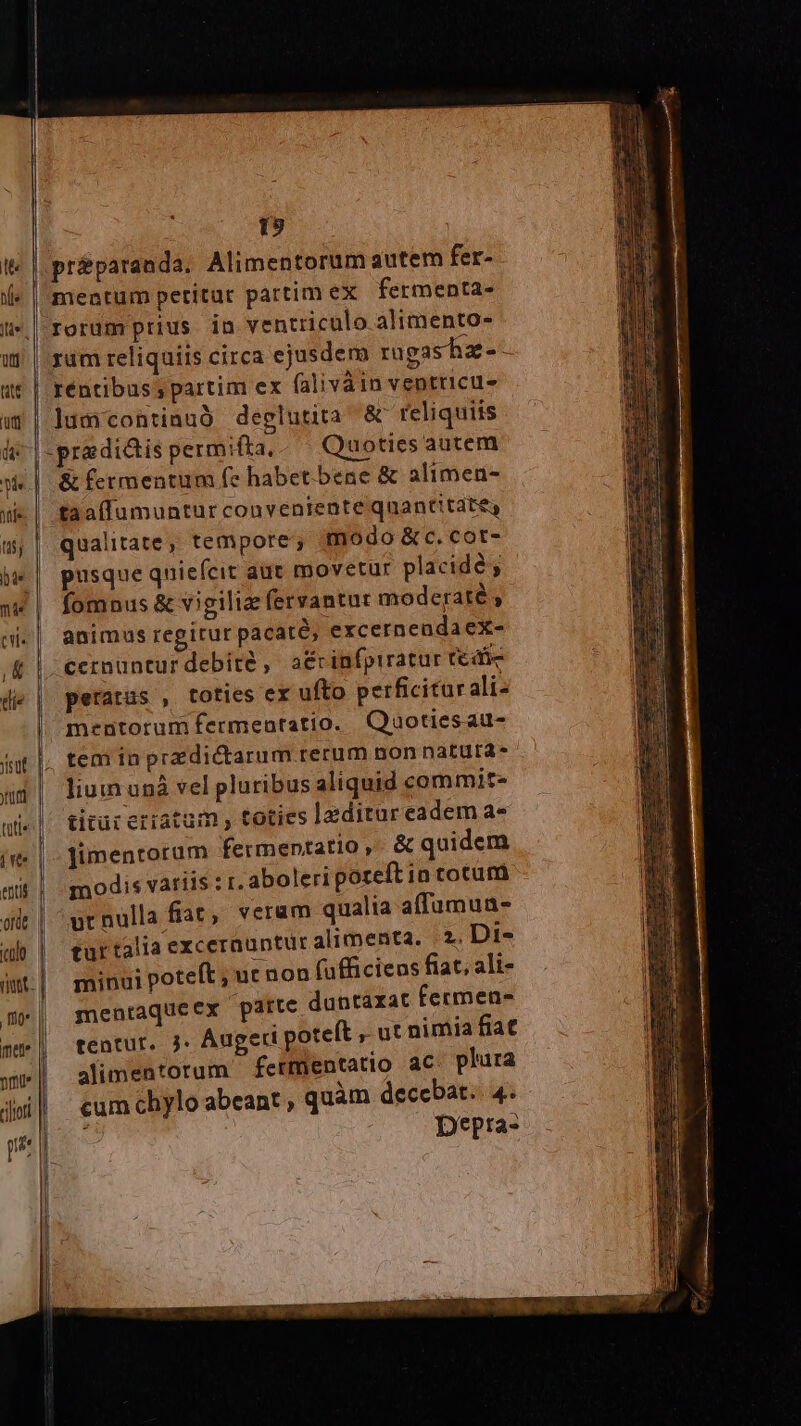 19
præparanda. Alimentorum autem fer-
mentum petitur partim ex fermenta-
torum prius in ventriculo alimento-
rum reliquiis circa ejusdem rugas hæ-
rentibus, partim ex ſalivâ in ventricu-
lum continuò deglutita & reliquiis
prædictis permiſta. Quoties autem
& fermentum ſe habet bene & alimen-
ta aſſumuntur conveniente quantitate,
qualitate, tempore, modo &c. cor-
pusque quieſcit aut movetur placidè,
ſomnus & vigiliæ ſervantur moderatè,
animus regitur pacatè, excernenda ex-
cernuntur debitè, aër inſpiratur
peratus, toties ex uſto perficitur ali-
mentorum fermentatio. Quoties au-
tem in prædictarum rerum non natura-
lium unâ vel pluribus aliquid commit-
titur erratum, toties læditur eadem a-
limentorum fermentatio, & quidem
modis variis: 1. aboleri poteſt in totum
ut nulla fiat, verum qualia aſſumun-
tur talia excernuntur alimenta. 2. Di-
minui poteſt, ut non ſufficiens fiat, ali-
mentaque ex parte duntaxat fermen-
tentur. 3. Augeri poteſt, ut nimia fiat
alimentorum fermentatio ac plura
cum chylo abeant, quàm decebat. 4.
Depra-